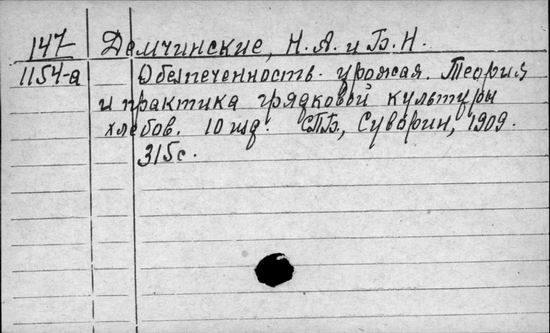 147 Демчинские, Н. А. и Б. Н.
1154-а Обезпеченность урожая. Теория
и практика грядковой культуры
хлебов. 10 изд. СПБ, Суворин, 1909.
315 с.